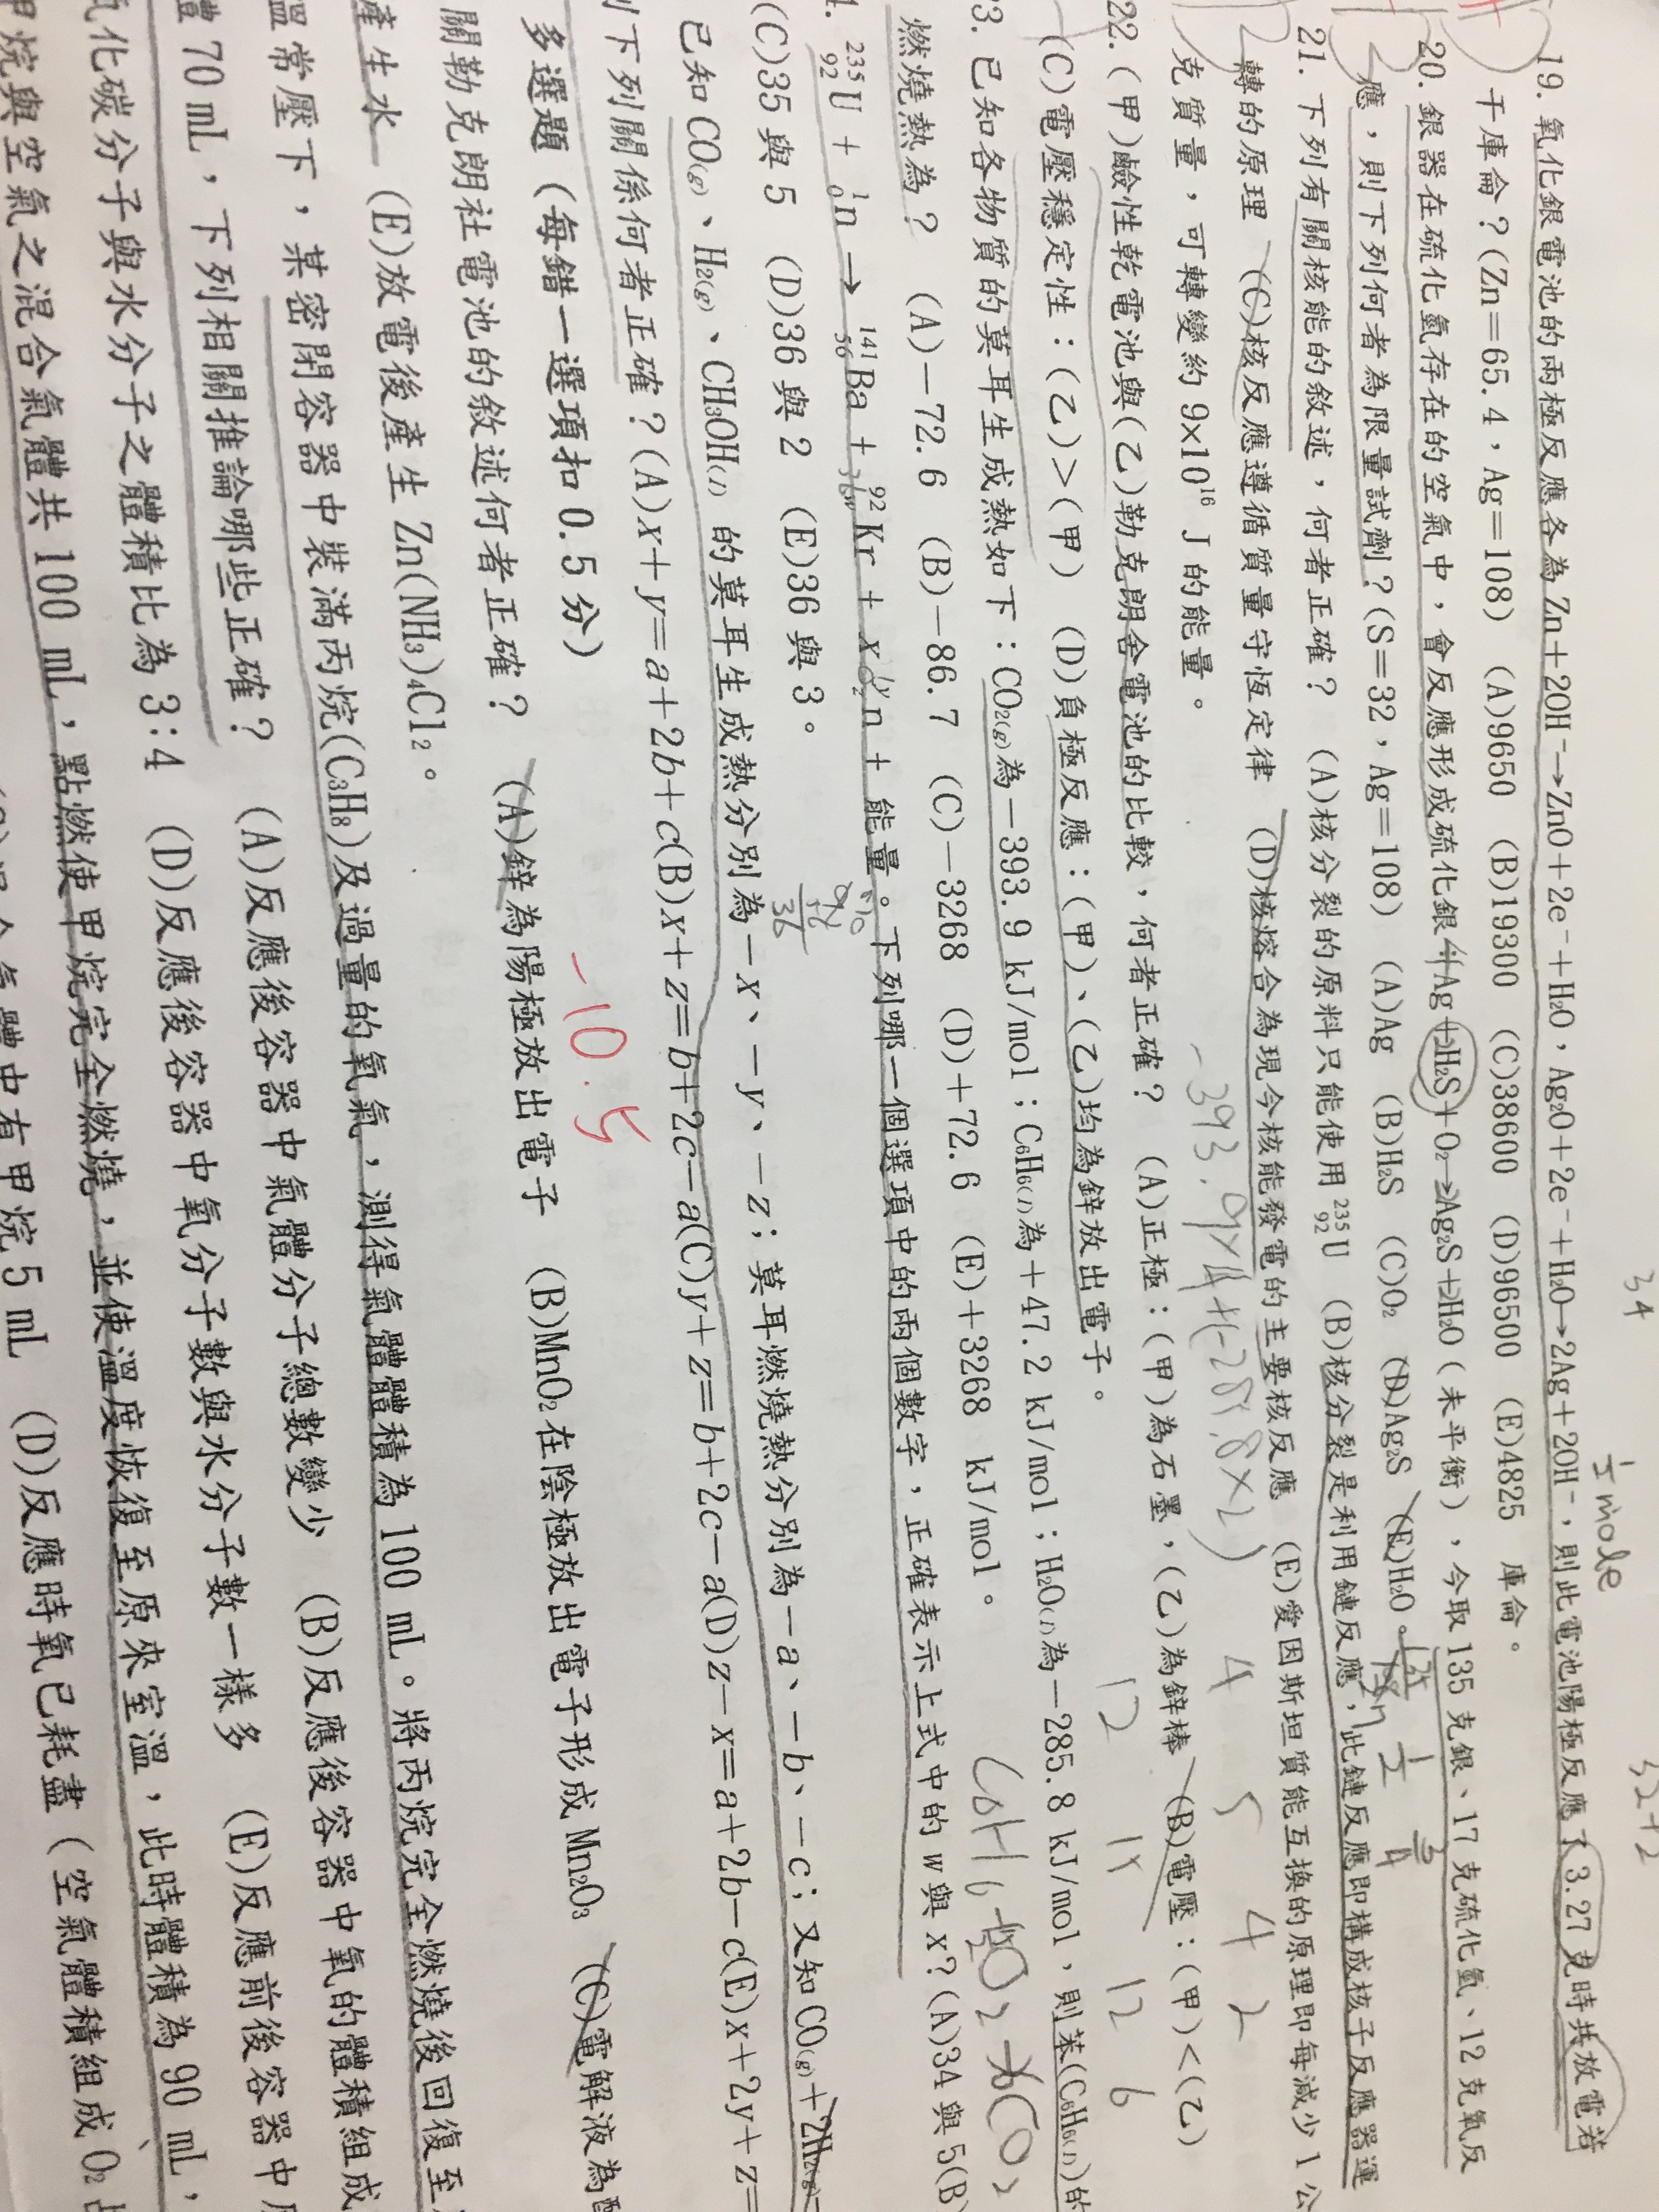 19. 氧化銀電池的兩極反應各為 Zn+2OH⁻→ZnO+2e⁻+H₂O，Ag₂O+2e⁻+H₂O→2Ag+2OH⁻，則此電池陽極反應了 3.27 克時共放電若
干庫侖？(Zn=65.4，Ag=108) (A)9650 (B)19300 (C)38600 (D)96500 (E)4825 庫侖。
20. 銀器在硫化氫存在的空氣中，會反應形成硫化銀 4Ag+2H₂S+O₂→2Ag₂S+2H₂O（未平衡），今取 135 克銀、17 克硫化氫、12 克氧反
應，則下列何者為限量試劑？(S=32，Ag=108) (A)Ag (B)H₂S (C)O₂ (D)Ag₂S (E)H₂O。
21. 下列有關核能的敘述，何者正確？ (A)核分裂的原料只能使用 ²³⁵₉₂U (B)核分裂是利用鏈反應，此鏈反應即構成核子反應器運
轉的原理 (C)核反應遵循質量守恆定律 (D)核熔合為現今核能發電的主要核反應 (E)愛因斯坦質能互換的原理即每減少 1 公
克質量，可轉變約 9x10¹⁶ J 的能量。
22. (甲)鹼性乾電池與(乙)勒克朗舍電池的比較，何者正確？ (A)正極：(甲)為石墨，(乙)為鋅棒 (B)電壓：(甲)<(乙)
(C)電壓穩定性：(乙)>(甲) (D)負極反應：(甲)、(乙)均為鋅放出電子。
23. 已知各物質的莫耳生成熱如下：CO₂(g)為－393.9 kJ/mol；C₆H₆(l)為+47.2 kJ/mol；H₂O(l)為－285.8 kJ/mol，則苯(C₆H₆(l))的
燃燒熱為？ (A)－72.6 (B)－86.7 (C)－3268 (D)+72.6 (E)+3268 kJ/mol。
4. ²³⁵₉₂U + ¹₀n → ¹⁴¹₅₆Ba + ⁹²wKr + x ¹₀n + 能量。下列哪一個選項中的兩個數字，正確表示上式中的 w 與 x？(A)34 與 5(B)
(C)35 與 5 (D)36 與 2 (E)36 與 3。
已知 CO(g)、H₂(g)、CH₃OH(l) 的莫耳生成熱分別為－x、－y、－z；莫耳燃燒熱分別為－a、－b、－c；又知 CO(g)+2H₂(g)=
下列關係何者正確？(A)x+y=a+2b+c(B)x+z=b+2c－a(C)y+z=b+2c－a(D)z－x=a+2b－c(E)x+2y+z=
多選題（每錯一選項扣 0.5 分）
－10.5
關勒克朗社電池的敘述何者正確？ (A)鋅為陽極放出電子 (B)MnO₂在陰極放出電子形成 Mn₂O₃ (C)電解液為
產生水 (E)放電後產生 Zn(NH₃)₄Cl₂。
溫常壓下，某密閉容器中裝滿丙烷(C₃H₈)及過量的氧氣，測得氣體體積為 100 mL。將丙烷完全燃燒後回復至
體 70 mL，下列相關推論哪些正確？ (A)反應後容器中氣體分子總數變少 (B)反應後容器中氧的體積組成
氧化碳分子與水分子之體積比為 3:4 (D)反應後容器中氧分子數與水分子數一樣多 (E)反應前後容器中
甲烷與空氣之混合氣體共 100 mL，點燃使甲烷完全燃燒，並使溫度恢復至原來室溫，此時體積為 90 mL，
氣體中有甲烷 5 mL (D)反應時氧已耗盡（空氣體積組成 O₂
34
32+2
½mole
－393.9×4+(-285.8×2)
4 5 4 2
12 15 12 6